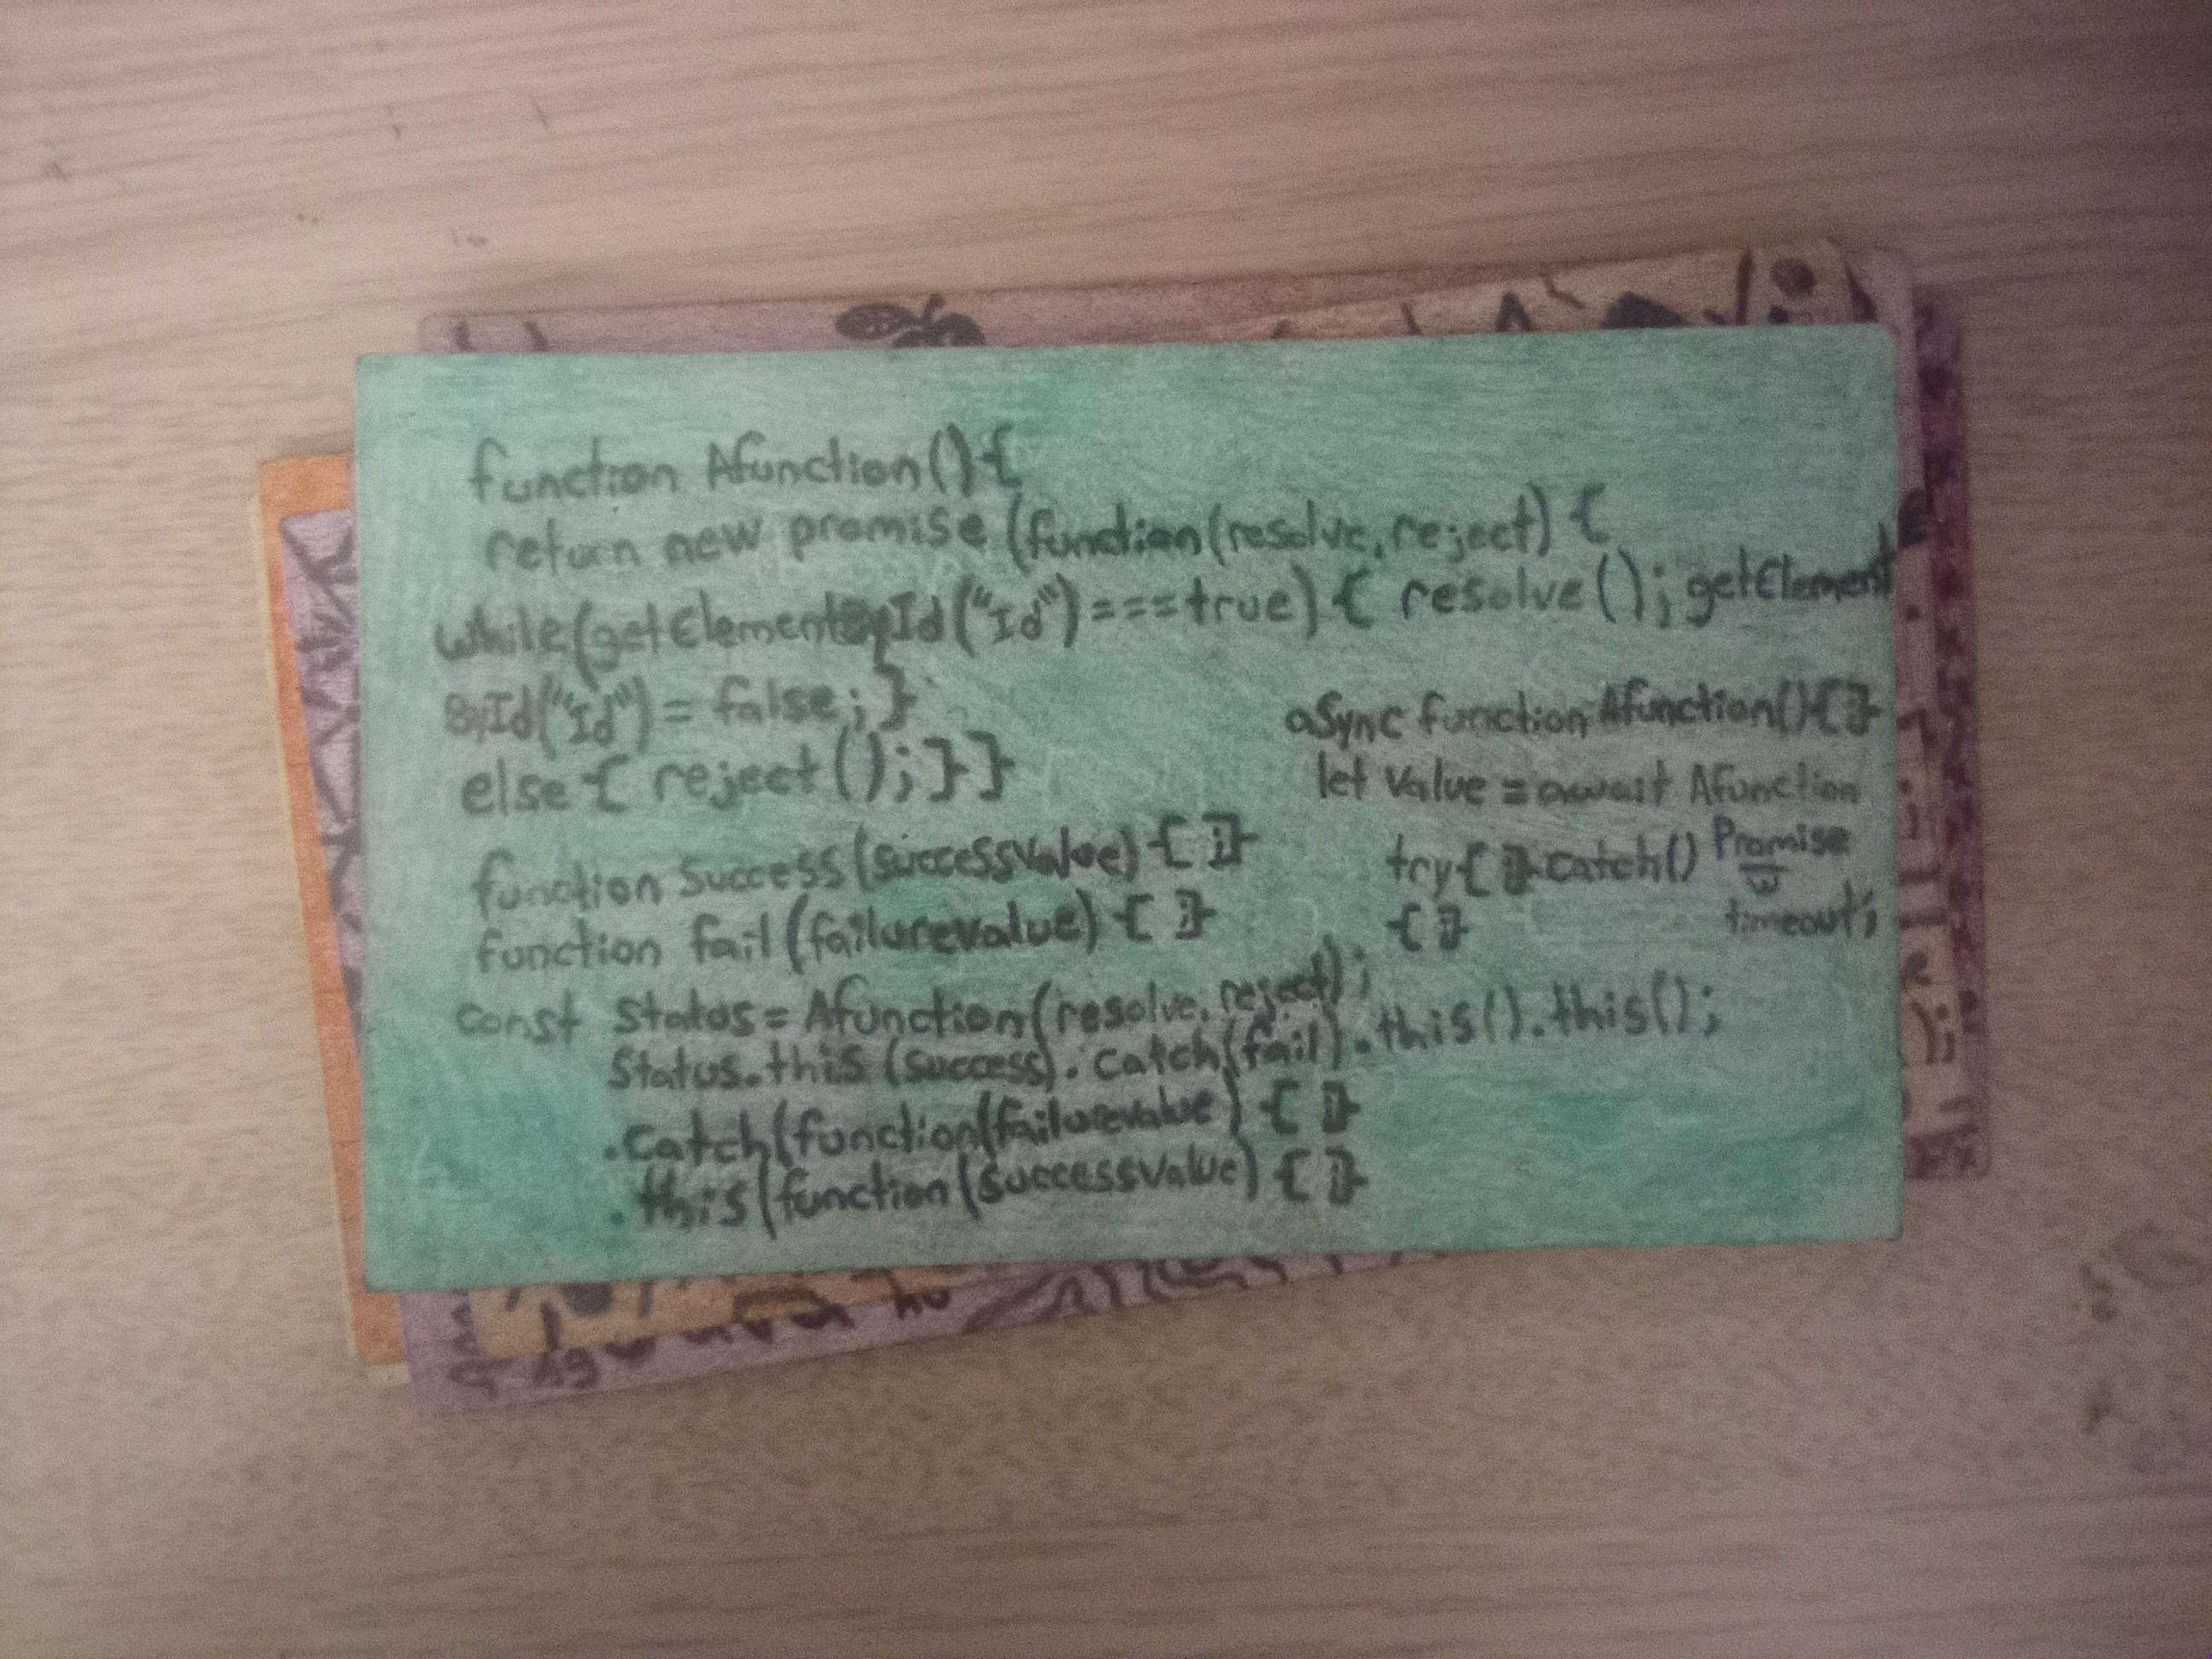 function Afunction(){
return new promise (function(resolve, reject) {
while(getElementById("Id")===true) { resolve(); getElement
ById("Id") = false; }
else { reject(); } }
function Success(successvalue) { ; }
function fail (failurevalue) { ; }
const Status = Afunction(resolve, reject);
Status.this (success). catch(fail).this().this();
.catch(function(failurevalue) { ; }
.this(function(successvalue) { ; }
async function Afunction(){ }
let value = await Afunction
try{ ; } catch() Promise
{ ; } w
timeout;